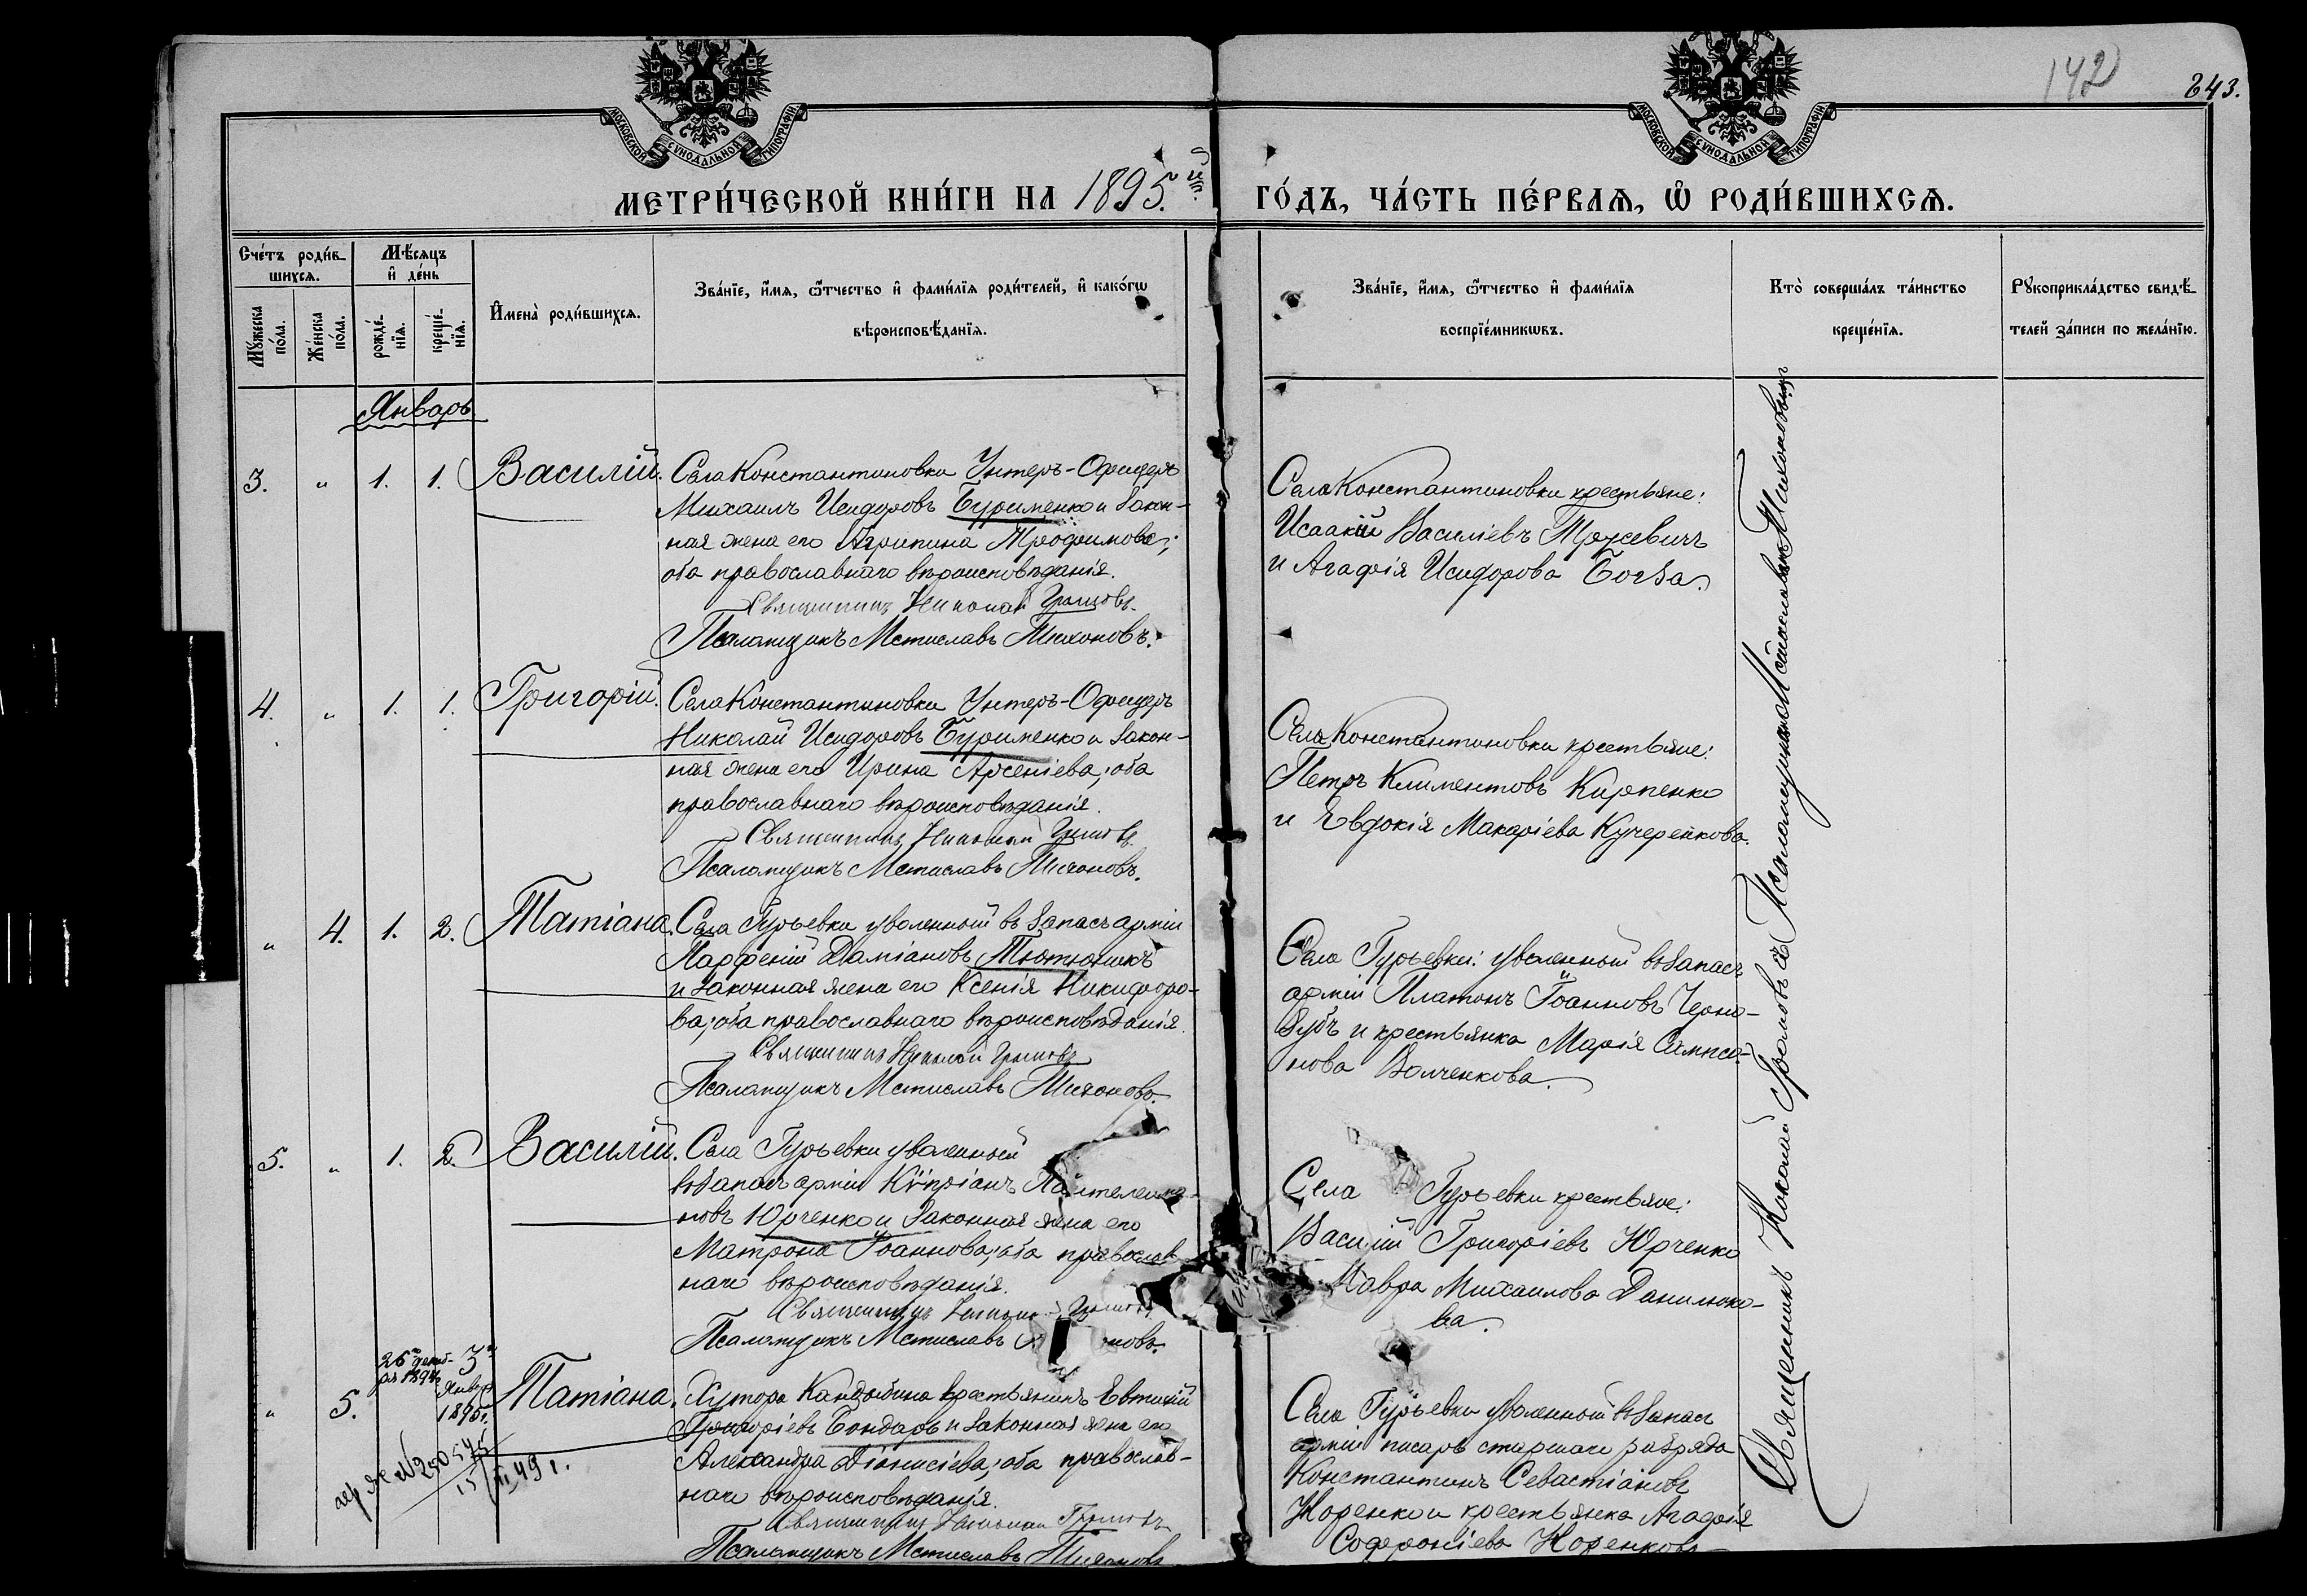 142
643.
МОСКОВСКОЙ СѴНОДАЛЬНОЙ ТИПОГРАФІИ
МОСКОВСКОЙ СѴНОДАЛЬНОЙ ТИПОГРАФІИ
МЕТРИ́ЧЕСКОЙ КНИ́ГИ НА 1895.й ГО́ДЪ, ЧА́СТЬ ПЕ́РВАѦ, Ѡ҆ РОДИ́ВШИХСѦ.
Сче́тъ роди́в-
шихсѧ.
Мѣ́сѧцъ
и҆ де́нь
Мꙋ́жеска
по́ла.
Же́нска
по́ла.
рожде́-
нїѧ.
креще́-
нїѧ.
И҆мена̀ роди́вшихсѧ.
Зва́нїе, и҆́мѧ, ѻ҆́тчество и҆ фами́лїѧ роди́телей, и҆ како́гѡ
вѣроисповѣ́данїѧ.
Зва́нїе, и҆́мѧ, ѻ҆́тчество и҆ фами́лїѧ
воспрїе́мникѡвъ.
Кто̀ соверша́лъ та́инство
креще́нїѧ.
Рꙋкоприкла́дство свидѣ́-
телей за́писи по жела́нїю.
Январь
3. " 1. 1. Василій.
Села Константиновки Унтеръ-Офицеръ
Михаилъ Исидоровъ Бурименко и закон-
ная жена его Агрипина Трофимова;
оба православнаго вѣроисповѣданія.
Священникъ Николай
Псаломщикъ Мстиславъ Тихоновъ.
Села Константиновки крестьяне:
Исаакій Василіевъ
и Агафія Исидорова
4. " 1. 1. Григорій.
Села Константиновки Унтеръ-Офицеръ
Николай Исидоровъ Бурименко и закон-
ная жена его Ирина Арсеніева; оба
православнаго вѣроисповѣданія.
Священникъ Николай
Псаломщикъ Мстиславъ Тихоновъ.
Села Константиновки крестьяне:
Петръ Климентовъ Кирпенко
и Евдокія Макаріева Кучеренкова.
" 4. 1. 2. Татіана.
Села Гурьевки уволенный въ запасъ арміи
Парфеній Даміановъ Тютюникъ
и законная жена его Ксенія Никифоро-
ва; оба православнаго вѣроисповѣданія.
Священникъ Николай
Псаломщикъ Мстиславъ Тихоновъ.
Села Гурьевки: уволенный въ запасъ
арміи Платонъ Іоанновъ Черно-
зубъ и крестьянка Марія Сампсо-
нова Волченкова.
5. " 1. 2. Василій.
Села Гурьевки уволенный
въ запасъ арміи Кипріанъ Пантелеимо-
новъ Юрченко и законная жена его
Матрона Іоаннова; оба православ-
наго вѣроисповѣданія.
Священникъ
Псаломщикъ Мстиславъ новъ.
Села Гурьевки крестьяне:
Василій Григоріевъ Юрченко
Мавра Михаилова Данилюко-
ва.
" 5. 26го декаб- ря 1894 3го Январ 1895 г. Татіана.
Хутора Кандыбина крестьянинъ Евтихій
Григоріевъ Бондарь и законная жена его
Александра Діонисіева; оба православ-
наго вѣроисповѣданія.
Священникъ Николай
Псаломщикъ Мстиславъ Тихоновъ
Села Гурьевки уволенный въ запасъ
арміи писарь старшаго разряда
Константинъ Севастіановъ
Норенко и крестьянка Агафія
Софроніева Норенкова
№ 250545
15/III 49 г.
Священникъ Николай съ Псаломщикомъ Мстиславомъ Тихоновымъ